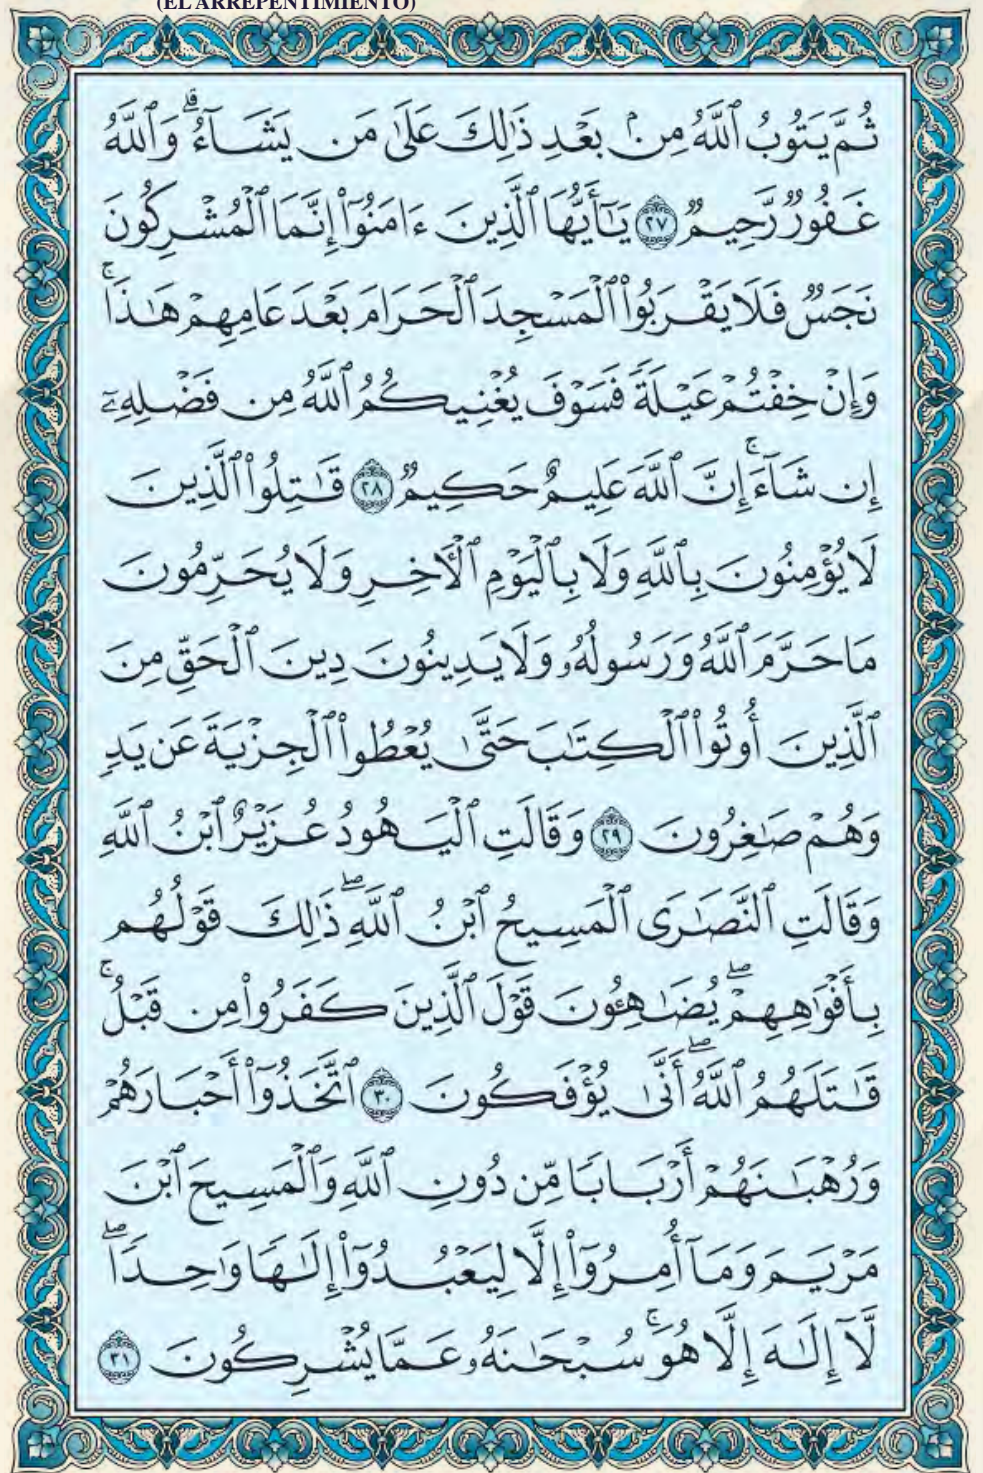 (EL ARREPENTIMIENTO)
ثُمَّ يَتُوبُ ٱللَّهُ مِنۢ بَعْدِ ذَٰلِكَ عَلَىٰ مَن يَشَآءُۗ وَٱللَّهُ
غَفُورٌ رَّحِيمٌ ٢٧ يَـٰٓأَيُّهَا ٱلَّذِينَ ءَامَنُوٓا۟ إِنَّمَا ٱلْمُشْرِكُونَ
نَجَسٌ فَلَا يَقْرَبُوا۟ ٱلْمَسْجِدَ ٱلْحَرَامَ بَعْدَ عَامِهِمْ هَـٰذَاۚ
وَإِنْ خِفْتُمْ عَيْلَةً فَسَوْفَ يُغْنِيكُمُ ٱللَّهُ مِن فَضْلِهِۦٓ
إِن شَآءَۚ إِنَّ ٱللَّهَ عَلِيمٌ حَكِيمٌ ٢٨ قَـٰتِلُوا۟ ٱلَّذِينَ
لَا يُؤْمِنُونَ بِٱللَّهِ وَلَا بِٱلْيَوْمِ ٱلْـَٔاخِرِ وَلَا يُحَرِّمُونَ
مَا حَرَّمَ ٱللَّهُ وَرَسُولُهُۥ وَلَا يَدِينُونَ دِينَ ٱلْحَقِّ مِنَ
ٱلَّذِينَ أُوتُوا۟ ٱلْكِتَـٰبَ حَتَّىٰ يُعْطُوا۟ ٱلْجِزْيَةَ عَن يَدٍ
وَهُمْ صَـٰغِرُونَ ٢٩ وَقَالَتِ ٱلْيَهُودُ عُزَيْرٌ ٱبْنُ ٱللَّهِ
وَقَالَتِ ٱلنَّصَـٰرَى ٱلْمَسِيحُ ٱبْنُ ٱللَّهِۖ ذَٰلِكَ قَوْلُهُم
بِأَفْوَٰهِهِمْۖ يُضَـٰهِـُٔونَ قَوْلَ ٱلَّذِينَ كَفَرُوا۟ مِن قَبْلُۚ
قَـٰتَلَهُمُ ٱللَّهُۖ أَنَّىٰ يُؤْفَكُونَ ٣٠ ٱتَّخَذُوٓا۟ أَحْبَارَهُمْ
وَرُهْبَـٰنَهُمْ أَرْبَابًا مِّن دُونِ ٱللَّهِ وَٱلْمَسِيحَ ٱبْنَ
مَرْيَمَ وَمَآ أُمِرُوٓا۟ إِلَّا لِيَعْبُدُوٓا۟ إِلَـٰهًا وَٰحِدًاۖ
لَّآ إِلَـٰهَ إِلَّا هُوَۚ سُبْحَـٰنَهُۥ عَمَّا يُشْرِكُونَ ٣١